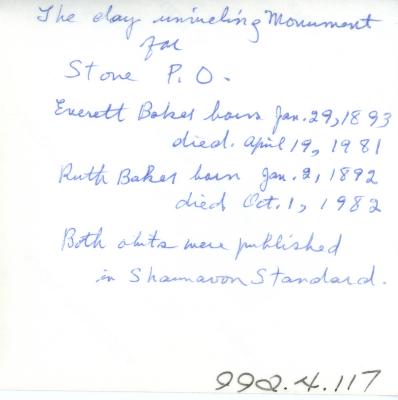 The day unviueling Monument
for
Stone P.O.
Everett Baker born Jan. 29, 1893
died. April 19, 1981
Ruth Baker born Jan. 2, 1892
died Oct. 1, 1982
Both obits were published
in Shaunavon Standard.
992.4.117